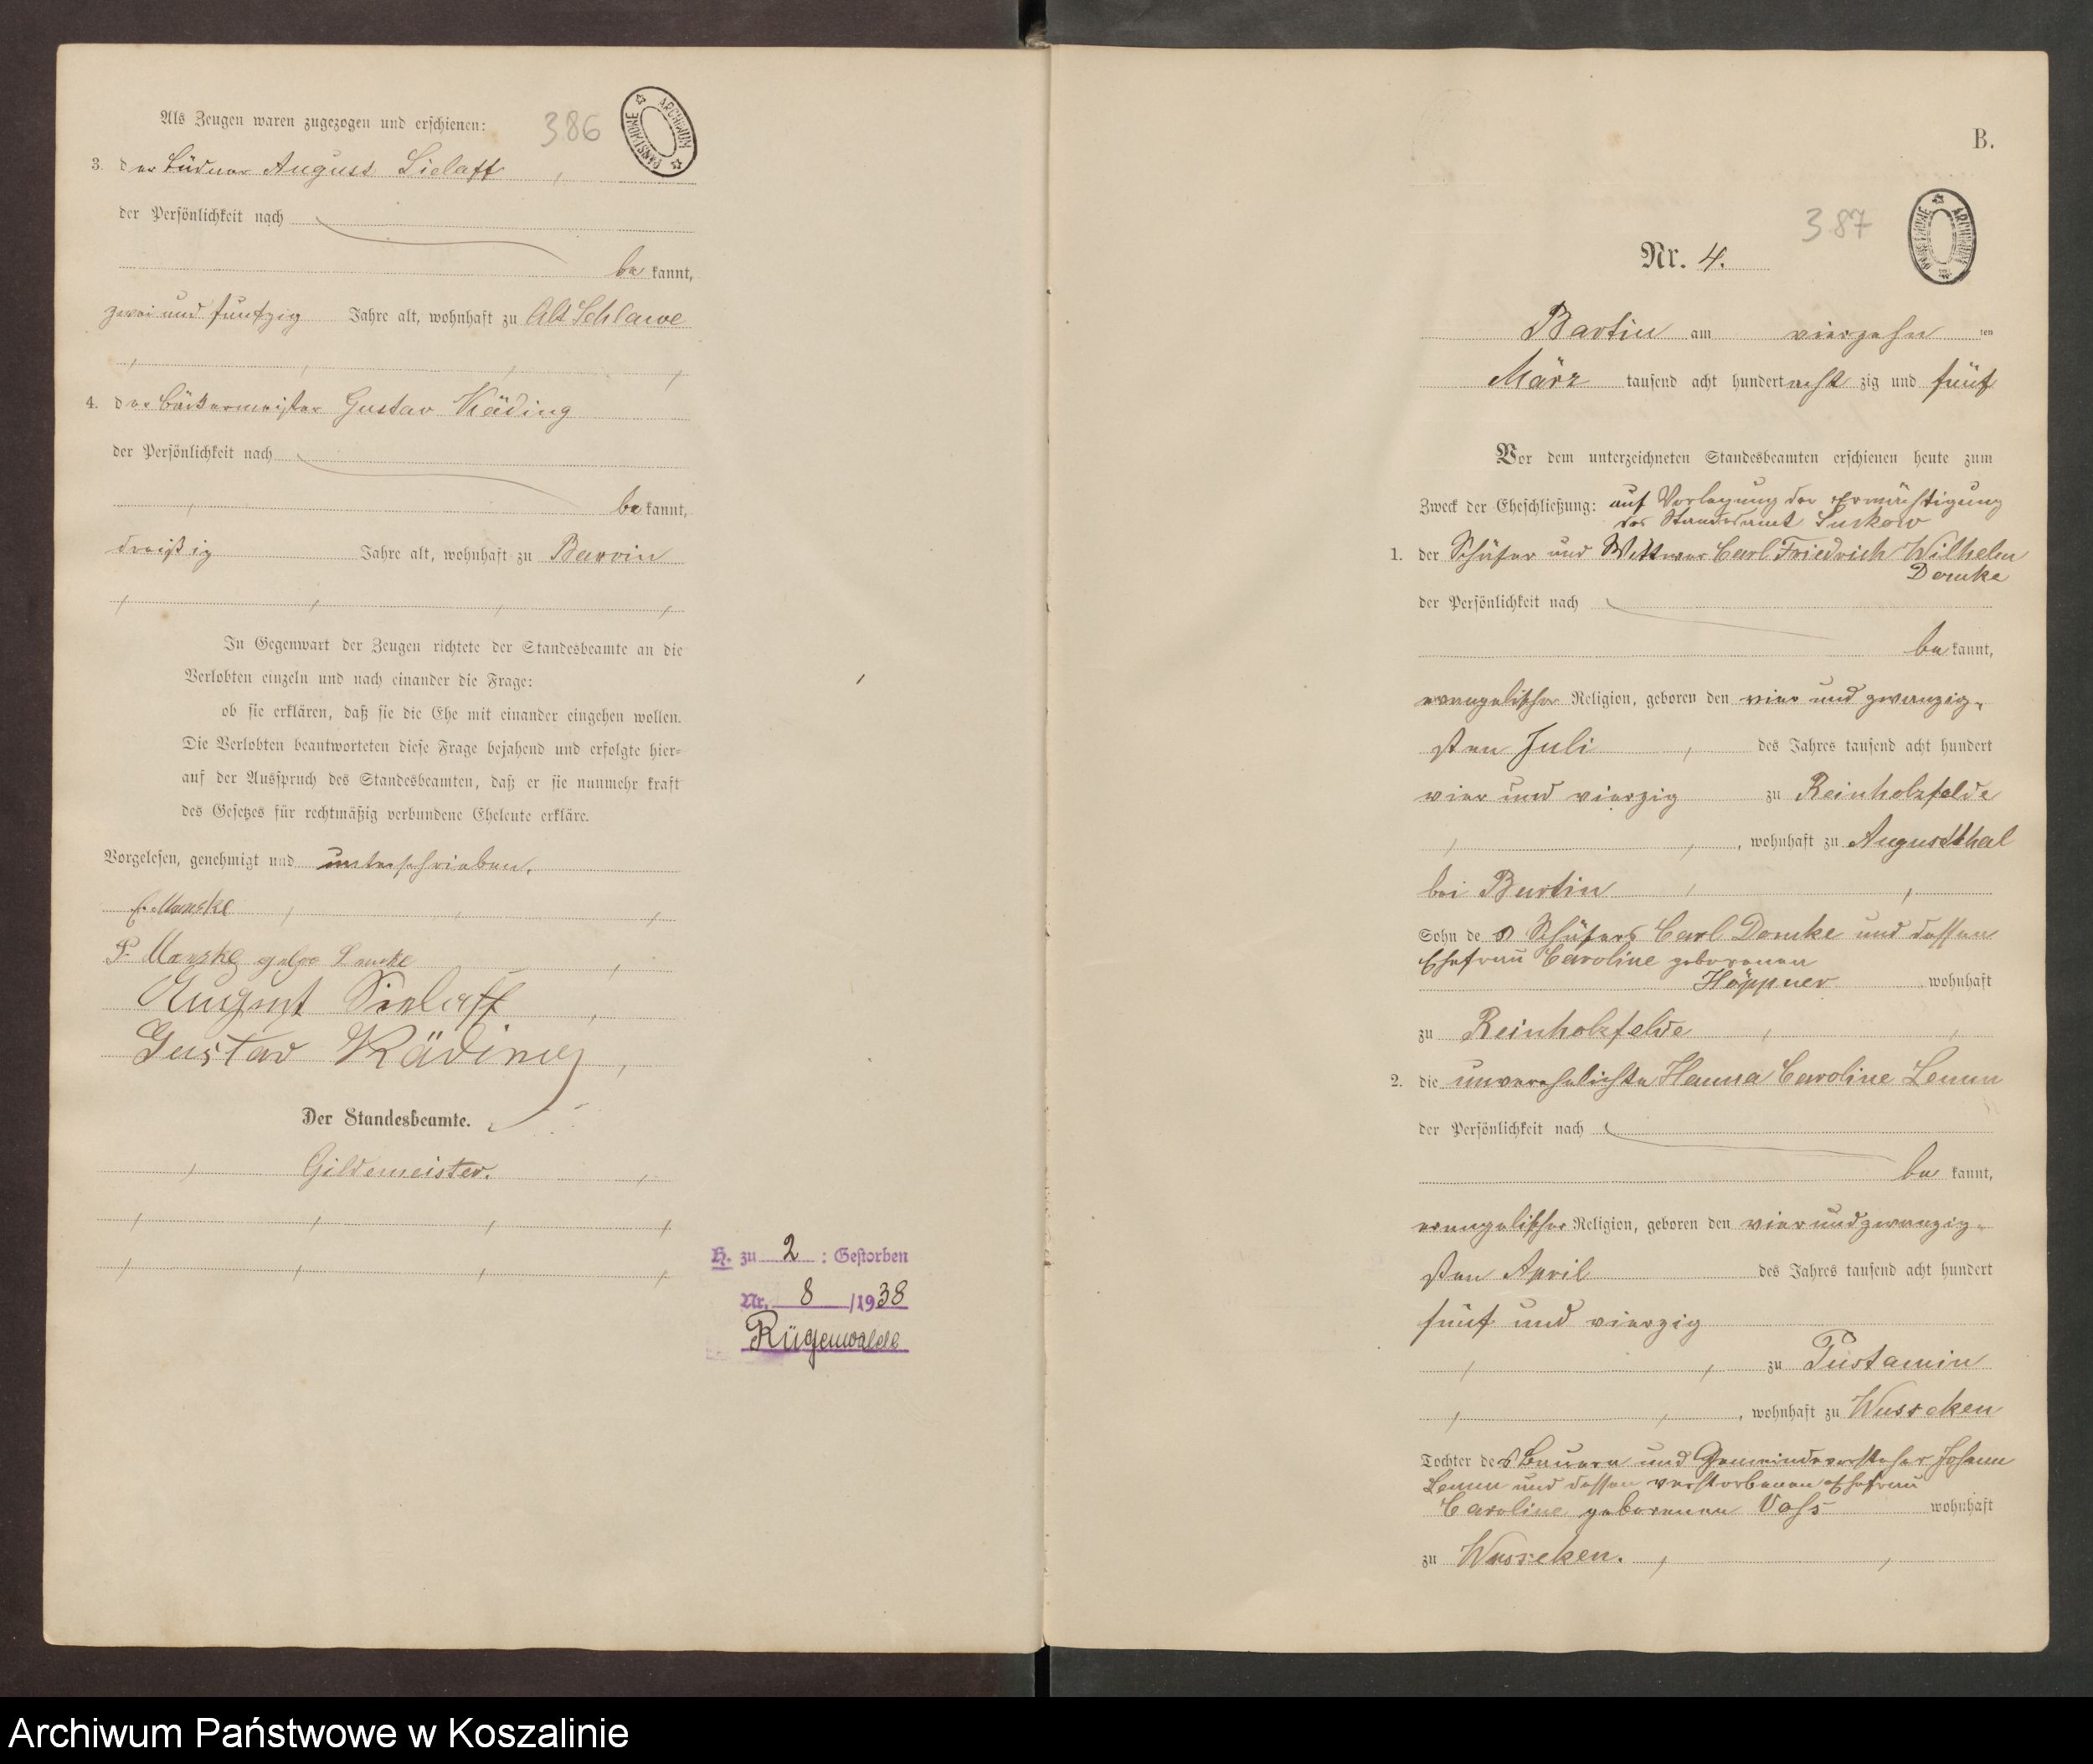 386
Als Zeugen waren zugezogen und erschienen:
ARCHIWUM PAŃSTWOWE
3. der Büdner August Sielaff
der Persönlichkeit nach
be kannt,
zwei und funfzig Jahre alt, wohnhaft zu Alt Schlawe
4. der Bäckermeister Gustav Käding
der Persönlichkeit nach
be kannt,
dreißig Jahre alt, wohnhaft zu Barvin
In Gegenwart der Zeugen richtete der Standesbeamte an die
Verlobten einzeln und nach einander die Frage:
ob sie erklären, daß sie die Ehe mit einander eingehen wollen.
Die Verlobten beantworteten diese Frage bejahend und erfolgte hier=
auf der Ausspruch des Standesbeamten, daß er sie nunmehr kraft
des Gesetzes für rechtmäßig verbundene Eheleute erkläre.
Vorgelesen, genehmigt und unterschrieben.
Manske
P. Manske
August Sielaff
Gustav Käding
Der Standesbeamte.
Gildemeister.
H. zu 2 : Gestorben
Nr. 8 /1938
Rügenwalde
B.
387
ARCHIWUM PAŃSTWOWE
Nr. 4.
Bartin am vierzehn ten
März tausend acht hundert acht zig und fünf
Vor dem unterzeichneten Standesbeamten erschienen heute zum
Zweck der Eheschließung: auf Vorlegung der Ermächtigung
des Standesamt Suckow
1. der Schäfer und Wittwer Carl Friedrich Wilhelm
Domke
der Persönlichkeit nach
be kannt,
evangelischer Religion, geboren den vier und zwanzig-
sten Juli des Jahres tausend acht hundert
vier und vierzig zu Reinholzfelde
, wohnhaft zu Augustthal
bei Bartin
Sohn de s Schäfers Carl Domke und dessen
Ehefrau Caroline geborenen
Höppner wohnhaft
zu Reinholzfelde
2. die unverehelichte Hanna Caroline Lemm
der Persönlichkeit nach
be kannt,
evangelischer Religion, geboren den vier und zwanzig-
sten April des Jahres tausend acht hundert
fünf und vierzig
zu Pustamin
, wohnhaft zu Wusseken
Tochter des Bauern und Gemeindevorsteher Johann
Lemm und dessen verstorbenen Ehefrau
Caroline geborenen Voss wohnhaft
zu Wusseken.
Archiwum Państwowe w Koszalinie